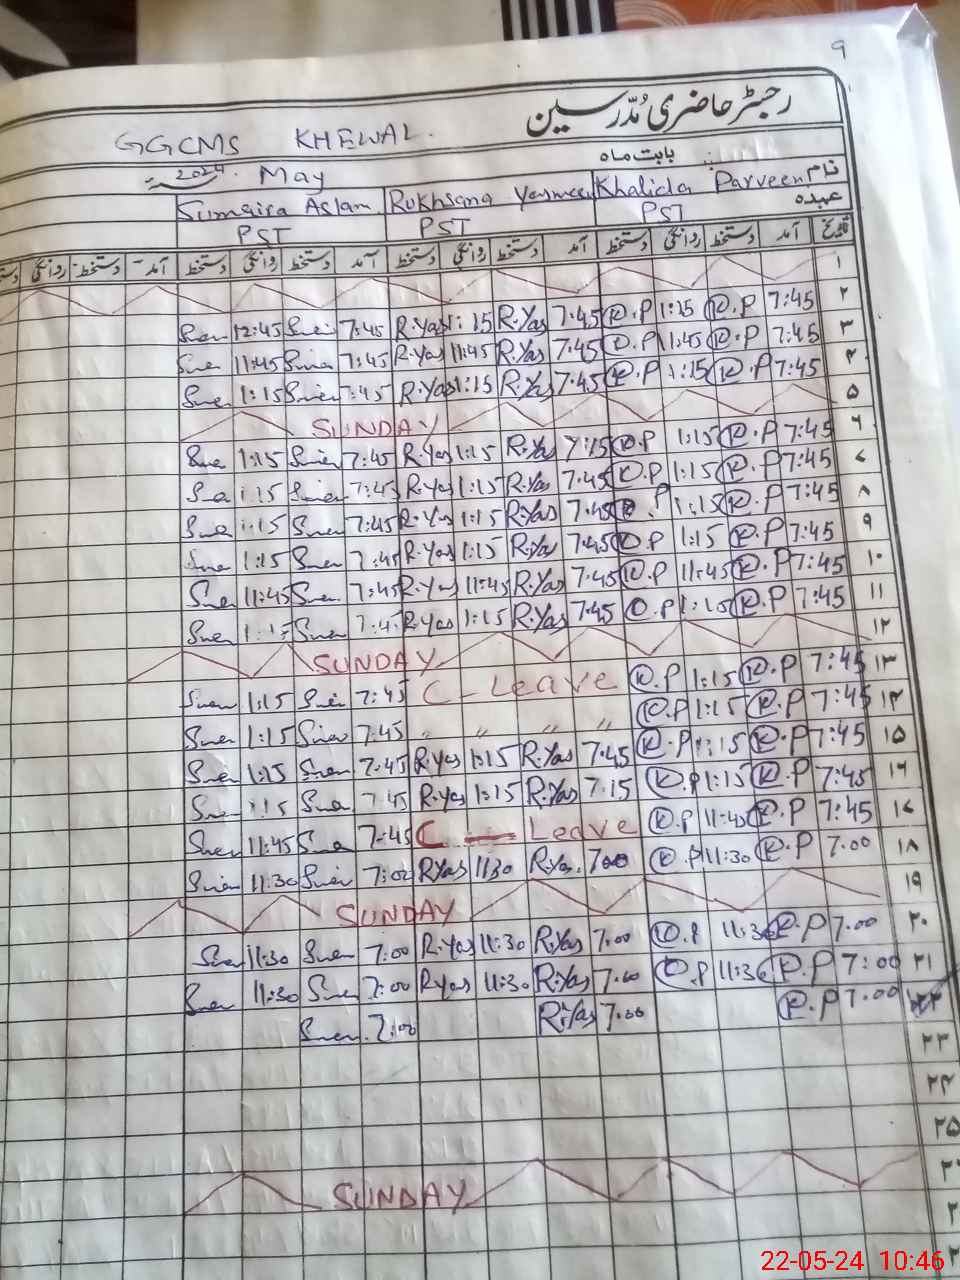 ۹
رجسٹر حاضری مُدرّسین
GGCMS KHEWAL.
بابت ماہ
May 2024
نام Khalida Parveen Rukhsana Yasmeen Sumaira Aslam
عہدہ PST PST PST
تاریخ آمد دستخط روانگی دستخط آمد دستخط روانگی دستخط آمد دستخط روانگی دستخط آمد دستخط روانگی
۱
۲ 7:45 K.P 1:15 K.P 7:45 R.Yas 1:15 R.Yas 7:45 12:45
۳ 7:45 K.P 11:45 K.P 7:45 R.Yas 11:45 R.Yas 7:45 11:45
۴ 7:45 K.P 1:15 K.P 7:45 R.Yas 1:15 R.Yas 7:45 1:15
۵ SUNDAY
۶ 7:45 K.P 1:15 K.P R.Yas 1:15 R.Yas 7:45 1:15
۷ 7:45 K.P 1:15 K.P 7:45 R.Yas 1:15 R.Yas 7:45 1:15
۸ 7:45 K.P 1:15 K.P 7:45 R.Yas 1:15 R.Yas 7:45 1:15
۹ 7:45 K.P 1:15 K.P 7:45 R.Yas 1:15 R.Yas 7:45 1:15
۱۰ 7:45 K.P 11:45 K.P 7:45 R.Yas 11:45 R.Yas 7:45 11:45
۱۱ 7:45 K.P 1:15 K.P 7:45 R.Yas 1:15 R.Yas 7:45 1:15
۱۲ SUNDAY
۱۳ 7:45 K.P 1:15 K.P C - Leave 7:45 1:15
۱۴ 7:45 K.P 1:15 K.P " " " " 7:45 1:15
۱۵ 7:45 K.P 1:15 K.P 7:45 R.Yas 1:15 R.Yas 7:45 1:15
۱۶ 7:45 K.P 1:15 K.P 7.15 R.Yas 1:15 R.Yas 7:45 1:15
۱۷ 7:45 K.P 11:45 K.P C - Leave 7:45 11:45
۱۸ 7.00 K.P 11:30 K.P 7.00 R.Yas. 1130 R.Yas 7:00 11:30
۱۹ SUNDAY
۲۰ 7.00 K.P 11:30 K.P 7.00 R.Yas 11:30 R.Yas 7.00 11:30
۲۱ 7:00 K.P 11:30 K.P 7.00 R.Yas 11:30 R.Yas 7:00 11:30
7.00 K.P 7.00 R.Yas 7:00
۲۳
۲۴
۲۵
SUNDAY
22-05-24 10:46